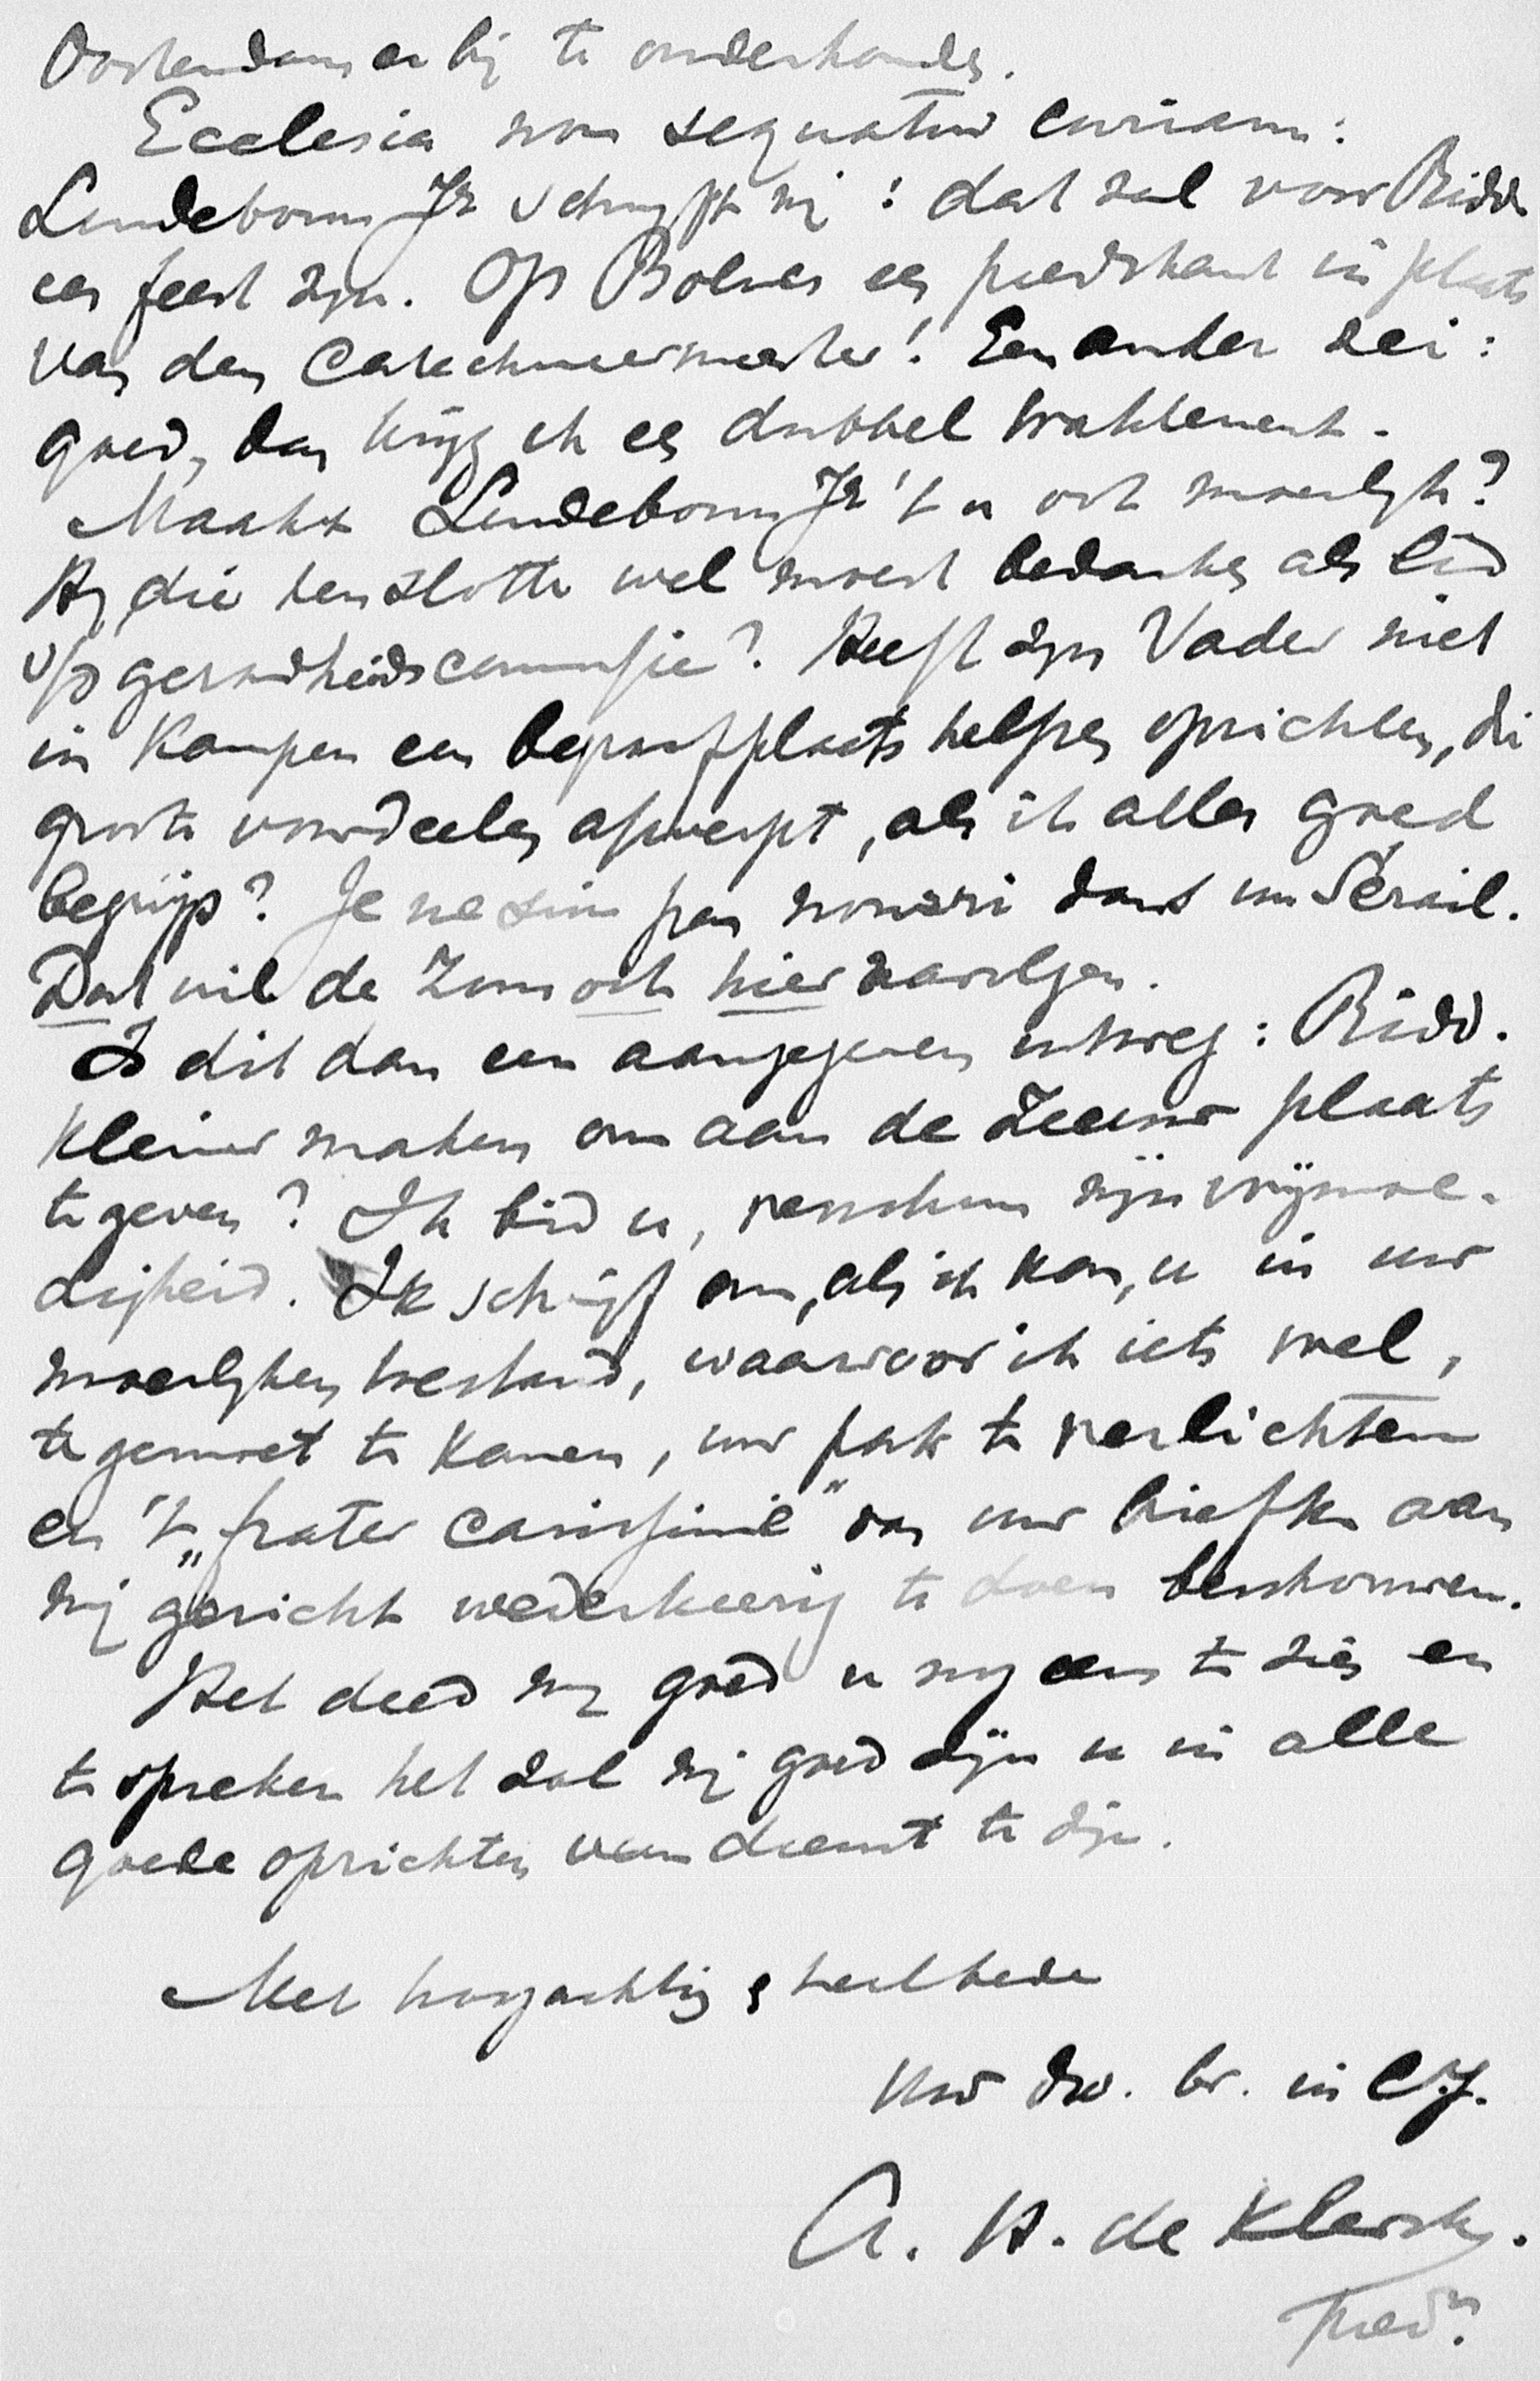 Oostendam er bij te onderhouden.
Ecclesia non sequatur curiam:
Lindeboom Jr schrijft mij: dat zal voor Ridd.
een feest zijn. Op Bolnes een predikant in plaats
van den Catechiseermeester! Een ander zei:
goed, dan krijg ik een dubbel traktement.
Maakt Lindeboom Jr 't u ook moeilijk?
Hij die ten slotte wel moest bedanken als lid
v/d gezondheidscommissie? Heeft zijn Vader niet
in Kampen een begraafplaats helpen oprichten, die
groote voordeelen afwerpt, als ik alles goed
begrijp? Je ne suis pas nourri dans un Sérail.
Dat wil de Zoon ook hier navolgen.
Is dit dan een aangegeven uitweg: Ridd.
kleiner maken om aan de Zeeuw plaats
te geven? Ik bid u, verschoon mijn vrijmoe-
digheid. Ik schrijf om, als ik kan, u in uw
moeilijken toestand, waarvoor ik iets voel,
tegemoet te komen, uw pak te verlichten
en 't „frater carissime" van uw briefke aan
mij gericht wederkeerig te doen beschouwen.
Het deed mij goed u nog eens te zien en
te spreken het zal mij goed zijn u in alle
goede oprichten van dienst te zijn.
Met hoogachting & heilbede
Uw dw. br. in C.J.
A. H. de Klerck.
Pred.